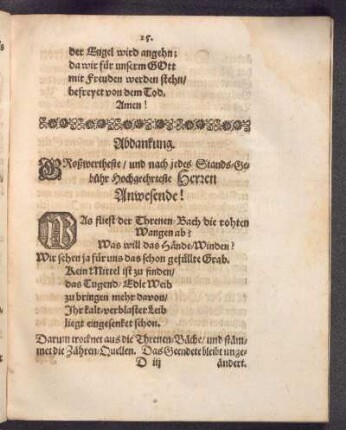 15.
der Engel wird angehn;
da wir für unserm GOtt
mit Freuden werden stehn/
befreyet von dem Tod.
Amen!
Abdankung.
GRoßwertheste/ und nach jedes Stands-Ge-
bühr Hochgeehrteste Herren
Anwesende!
WAs fliest der Threnen-Bach die rohten
Wangen ab?
Was will das Hände/Winden?
Wir sehen ja für uns das schon gefüllte Grab.
Kein Mittel ist zu finden/
das Tugend-Edle Weib
zu bringen mehr davon/
Ihr kalt-verblaster Leib
liegt eingesenket schon.
Darum trocknet aus die Threnen-Bäche/ und stäm-
met die Zähren-Quellen. Das Geendete bleibt unge-
D iij
ändert.